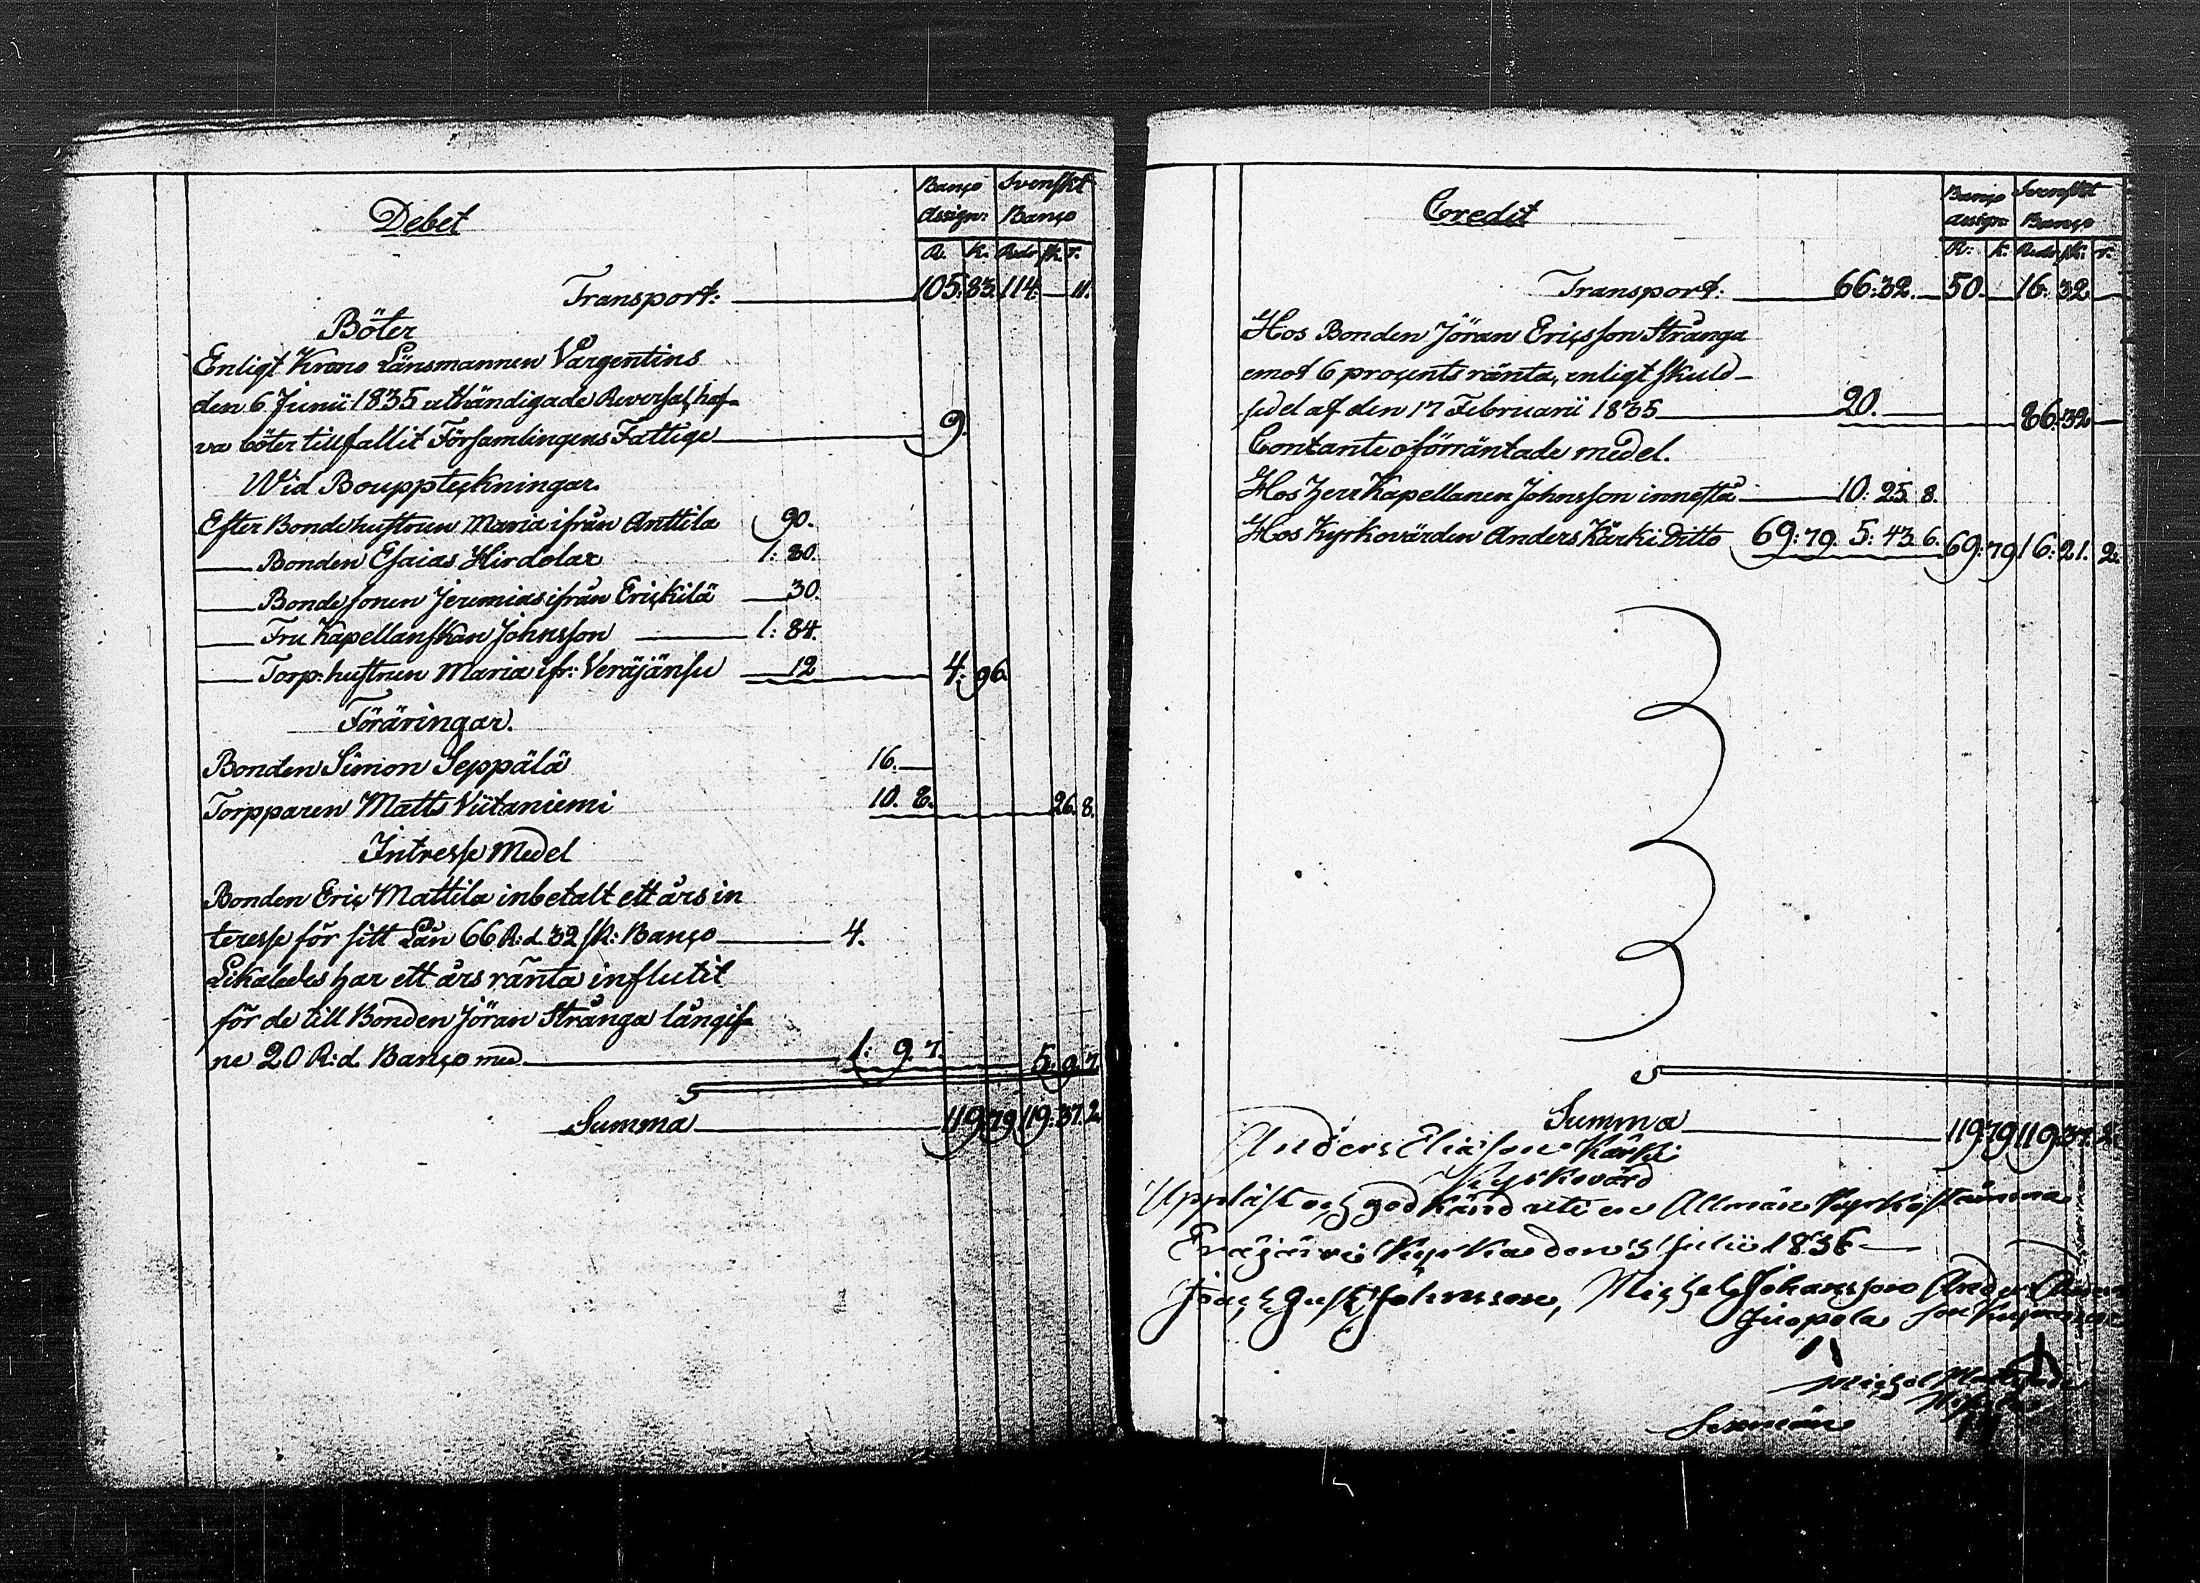 Debet
Banco Assign: Svenskt Banco
R. K. Rdr sk. r.
Transport: 105: 83. 114: — 11.
Böter
Enligt Krono Länsmannen Vargentins
den 6 Junii 1835 uthändigade Reversal, haf-
va böter tillfallit Församlingens Fattige 9.
Wid Boupptekningar.
Efter Bondehustrun Maria ifrån Anttila 90.
Bonden Esaias Hirdolax 1: 80.
Bondesonen Jeremias ifrån Erickilä 30.
Fru Kapellanskan Johnsson 1: 84.
Torp: hustrun Maria ifr: Veräjänsu 12 4: 96.
Föräringar.
Bonden Simon Seppälä 16.
Torpparen Matts Viitaniemi 10. 8. 26. 8.
Intresse Medel
Bonden Eric Mattila inbetalt ett års in
teresse för sitt Lån 66 R:d. 32 sk: Banco 4.
Likaledes har ett års ränta influtit
för de till Bonden Jöran Strånga långif-
ne 20 R:d. Banco med 1: 9. 7. 5. 9. 7.
Summa 119: 79 119: 37. 2
Credit
Banco Assign: Svenskt Banco
R: k. Rdr sk: r.
Transport: 66: 32. 50. 16: 32
Hos Bonden Jöran Ericsson Strånga
emot 6 procents ränta, enligt skuld-
sedel af den 17 Februarii 1835 20. 86: 32
Contante oförräntade medel.
Hos Herr Kapellanen Johnsson innestå 10: 25. 8.
Hos Kyrkovärden Anders Kärki Ditto 69: 79. 5: 43. 6. 69: 79 16: 21. 2.
Summa 119: 79 119: 37. 2.
Anders Eliasson Kärki
Kyrkovärd
Uppläst och godkänd uti en Allmän Kyrkostämma
Eräjärvi Kyrka den 3 Julii 1836
Joach Gust Johnsson, Michel Johansson Anders
Juopola
Michel
Sexmän